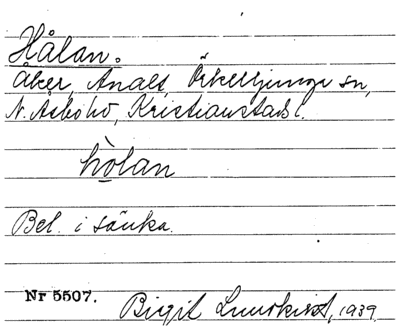 Hålan.
Åker, Analt, Örkelljunga sn,
N. Åsbo hd, Kristianstads l.
hо̀lan
Bel. i sänka.
Nr 5507.
Birgit Lundkvist, 1939.